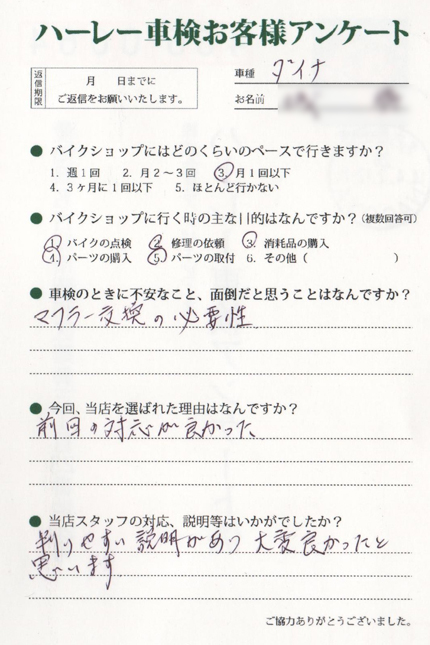 ハーレー車検お客様アンケート
返信期限
月　日までに
ご返信をお願いいたします。
車種　ダイナ
お名前
● バイクショップにはどのくらいのペースで行きますか？
1. 週1回　2. 月2～3回　3. 月1回以下
4. 3ヶ月に1回以下　5. ほとんど行かない
● バイクショップに行く時の主な目的はなんですか？（複数回答可）
1. バイクの点検　2. 修理の依頼　3. 消耗品の購入
4. パーツの購入　5. パーツの取付　6. その他（　　　）
● 車検のときに不安なこと、面倒だと思うことはなんですか？
マフラー交換の必要性
● 今回、当店を選ばれた理由はなんですか？
前回の対応が良かった
● 当店スタッフの対応、説明等はいかがでしたか？
判りやすい説明があり大変良かったと
思います
ご協力ありがとうございました。